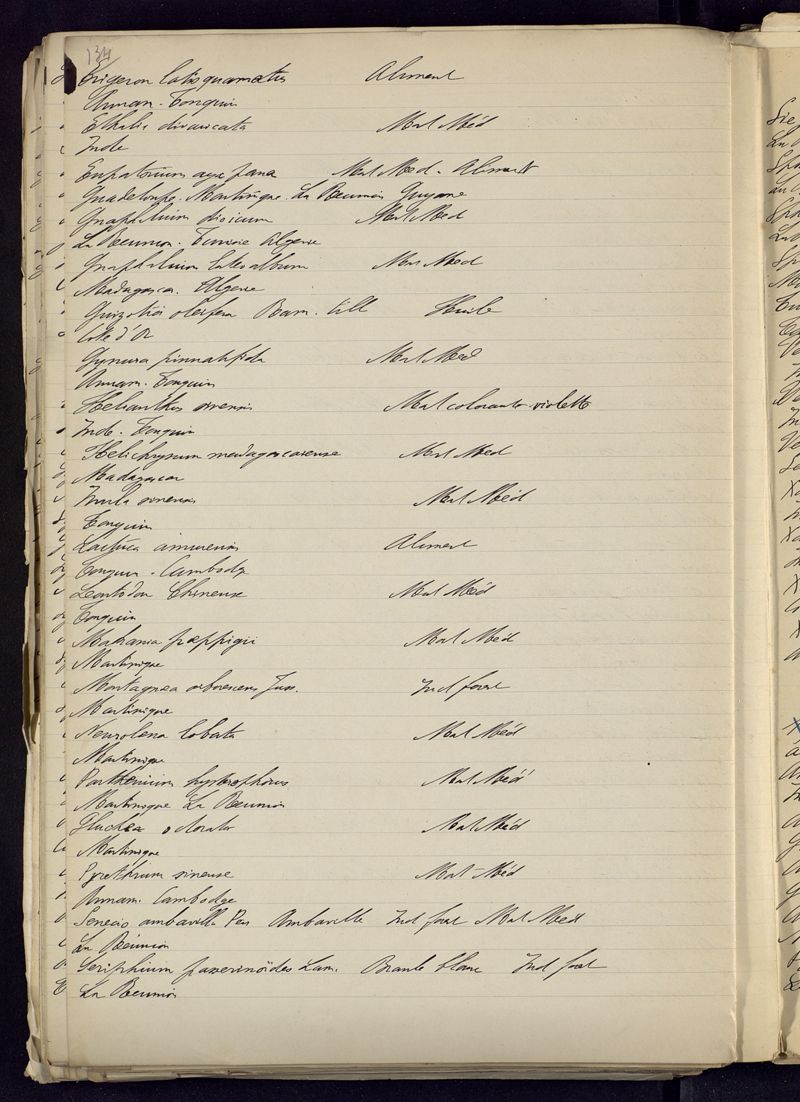 134
Erigeron latisquamatus Aliment
Annam. Tonquin
Ethulia divaricata Mat Méd
Inde
Eupatorium aya pana Mat Med. Aliment
Guadeloupe. Martinique. La Reunion Guyane
Gnaphalium dioicum Mat Med
La Reunion. Tunisie Algerie
Gnaphalium luteo album Mat Med
Madagascar. Algerie
Guizotia oleifera Bam. till Huile
Cote d'Or
Gynura pinnatifida Mat Med
Annam. Tonquin
Helianthus sinensis Mat colorante violette
Inde. Tonquin
Helichrysum madagascarense Mat Med
Madagascar
Inula sinensis Mat Méd
Tonquin
Lactuca amurensis Aliment
Tonquin. Cambodge
Leontodon Chinense Mat Méd
Tonquin
Mikania pœppigii Mat Méd
Martinique
Montagnea arborescens Juss. Ind forest
Martinique
Neurolena lobata Mat Méd
Martinique
Parthenium hysterophorus Mat Méd
Martinique La Reunion
Pluchea odorata Mat Méd
Martinique
Pyrethrum sinense Mat-Méd
Annam. Cambodge
Senecio ambavilla Pers Ambaville Ind forest Mat Med
La Réunion
Seriphium passerinoïdes Lam. Branle blanc Ind forest
La Reunion